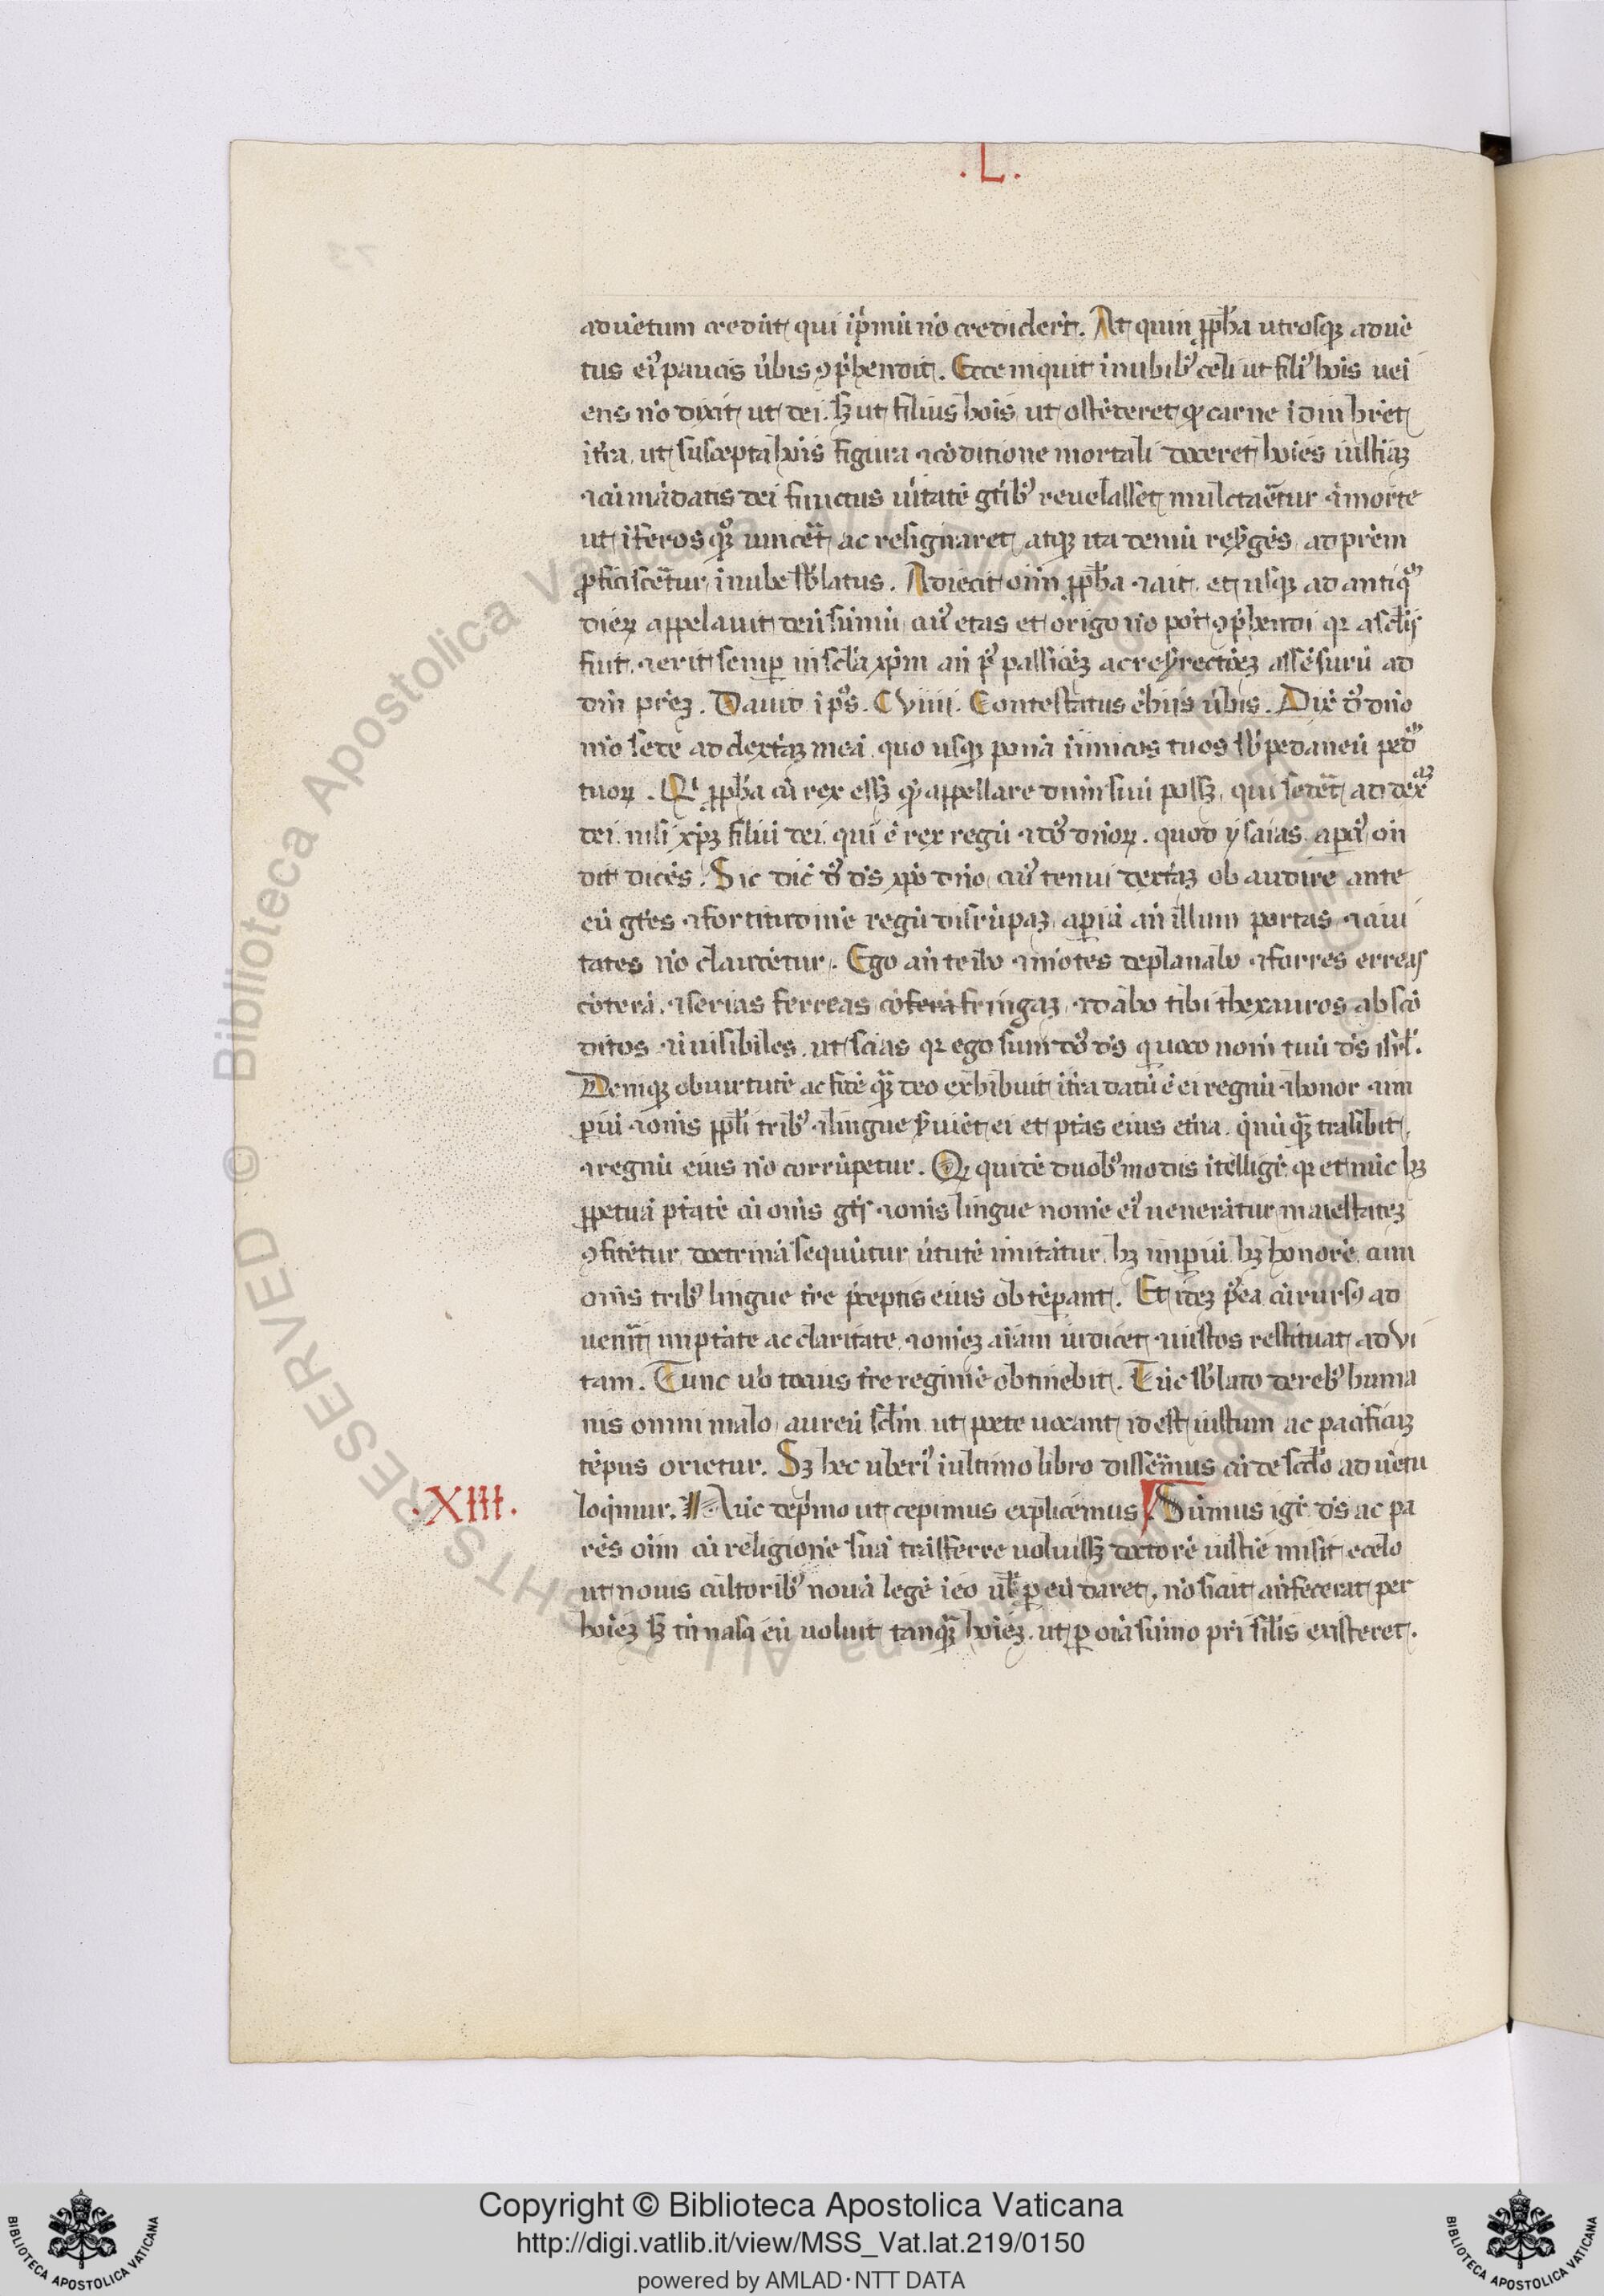 .L.
aduẽtum credũt qui ĩp̃mũ nõ crediderĩt. At quin ꝓph̃a utrosqꝫ aduẽ
tus eiꝰ paucis ũbis ꝯp̃hendit. Ecce inquit ĩnubibꝰ celi ut filiꝰ hoĩs ueĩ
ens nõ dixit ut dei. sꝫ ut filius hoĩs ut ostẽderet ꝙ carne ĩdui h̃ret
ĩtr̃a. ut suscepta hoĩs figura ⁊cõditione mortali doceret hoĩes iustiãꝫ
⁊cũ mãdatis dei functus ũitatẽ gẽtibꝰ reuelasset mulctaret̃ur ⁊morte
ut ĩferos qꝫ uinc̃et ac resignaret atqꝫ ita demũ resg̃ẽs ad prẽm
ꝓficisc̃etur ĩnube sb̃latus. Adiecit oĩm ꝓph̃a ⁊ait. et usqꝫ ad antiqũ
dieꝝ appelauit deũ sũmũ cuiꝰ etas et origo nõ põt ꝯp̃hendi qꝛ a sclĩs
fuit ⁊erit semꝑ in scl̃a xp̃m añ pꝰ passiõeꝫ ac resrectõeꝫ assẽsurũ ad
dm̃ prẽꝫ. Dauid ĩ ps̃. CVIIII. Contestatus ẽ hiis ũbis. Dix̃ dñs dño
mõ sede ad dextãꝫ meã quo usqꝫ ponã ĩimicos tuos sb̃pedaneũ pedũ
tuoꝝ. Qĩ ꝓph̃a cũ rex essꝫ quẽ appellare dnm̃ suũ possꝫ. qui sedẽt ad dexãꝫ
dei. nisi xp̃ꝫ filiũ dei. qui ẽ rex regũ ⁊dñs dñoꝝ. quod ysaias apꝰ oñ
dit dicẽs. Sic dic̃ dñs ds̃ xp̃o dño cuiꝰ tenui dextãꝫ ob audire ante
eũ gẽtes ⁊fortitudinẽ regũ disrũpaꝫ aperiã añ illum portas ⁊ciui
tates nõ claudẽtur. Ego añ te ibo ⁊mõtes deplanabo ⁊forres erreas
cõterã. ⁊serias ferreas cõferã fringaꝫ ⁊dabo tibi thexauros abscõ
ditos ⁊ĩuisibiles. ut scias qꝛ ego sum dñs ds̃ qui uoco nom̃ tuũ ds̃ isrl̃.
Deniqꝫ ob uirtutẽ ac fidẽ quã deo exhibuit ĩtr̃a datũ ẽ ei regnũ ⁊honor ⁊im
ꝑiũ ⁊om̃s ppl̃i tribꝰ ⁊lingue s̃uiẽt ei et ptãs eius etñа. q̃ nũqã trãsibit
⁊regnũ eius nõ corrũpetur. Qꝫ quidẽ duobꝰ modis ĩtelligĩ. qꝛ et nũc hꝫ
ꝑpetuã ptãtẽ cũ om̃s gẽtes ⁊om̃s lingue nomẽ eiꝰ uenerãtur maiestateꝫ
ꝯfitẽtur doctrinã sequũtur ũtutẽ imitãtur. hꝫ imꝑiũ hꝫ honorẽ cum
om̃s tribꝰ lingue tr̃e p̃ceptis eius obtẽperant. Et ideꝫ p̃ea cũ rursꝰ ad
uenĩt in ptãte ac claritate ⁊om̃eꝫ aĩam iudicet ⁊iustos restituat ad ui
tam. Tunc uõ totius tr̃e regimẽ obtinebit. Tũc sb̃lato de rebꝰ huma
nis omni malo aureũ scl̃m ut poete uocant id est iustum ac pacificũ
tẽpus orietur. Sꝫ hec uberiꝰ ĩ ultimo libro disserem̃us cũ de sc̃do aduẽtu
loqimur. Nũc de p̃mo ut cepimus explicemus Sũmus igĩ ds̃ ac pa
.XIII.
rẽs oĩm cũ religionẽ suã trãsferre uoluissꝫ doctorẽ iustie misit e celo
ut nouis cultoribꝰ nouã legẽ ĩ eo ul̃ ꝑ eũ daret. nõ sicut añ fecerat per
hoĩeꝫ sꝫ tñ nasci eũ uoluit tanqꝫ hoĩeꝫ. ut ꝑ oĩa sũmo pr̃i sil̃is existeret.
Copyright © Biblioteca Apostolica Vaticana
http://digi.vatlib.it/view/MSS_Vat.lat.219/0150
powered by AMLAD·NTT DATA
BIBLIOTECA APOSTOLICA VATICANA
BIBLIOTECA APOSTOLICA VATICANA